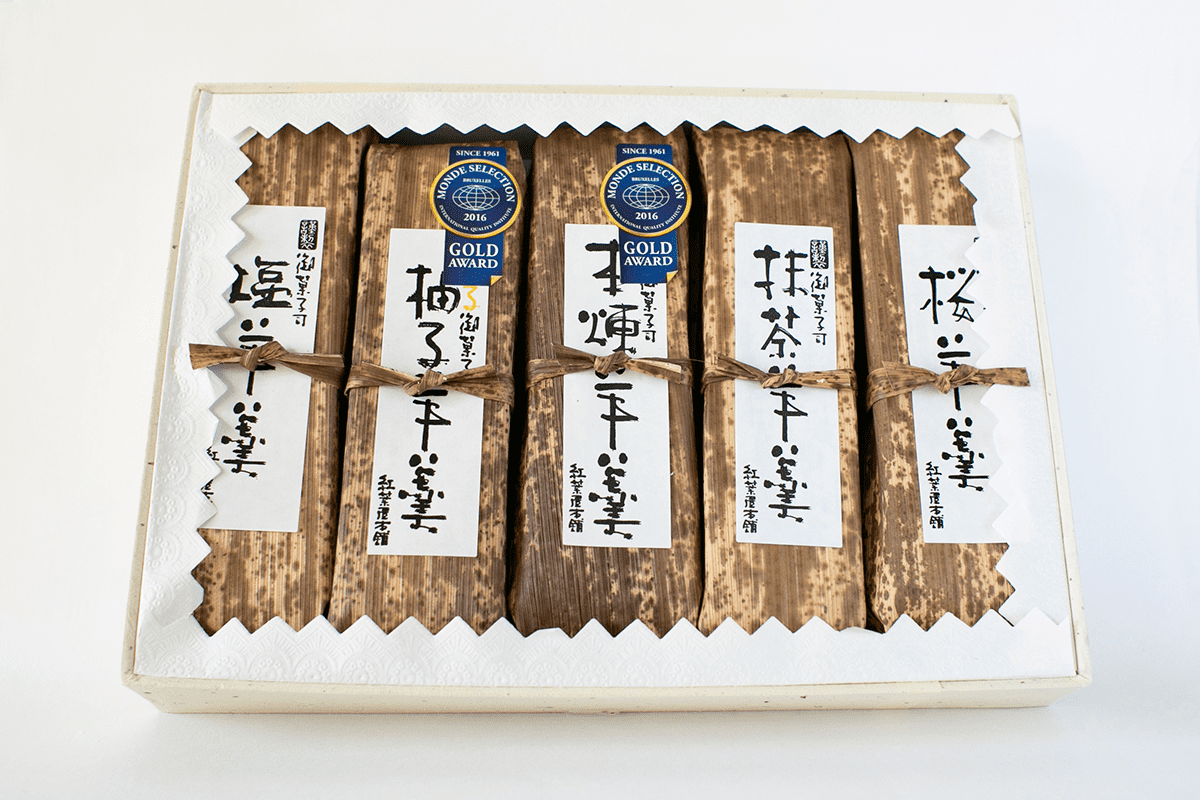 謹製
御菓子司
塩羊羹
紅
SINCE 1961
MONDE SELECTION
BRUXELLES
2016
INTERNATIONAL QUALITY INSTITUTE
GOLD
AWARD
御菓子
柚子羊羹
紅葉屋本舗
SINCE 1961
MONDE SELECTION
BRUXELLES
2016
INTERNATIONAL QUALITY INSTITUTE
GOLD
AWARD
菓子司
本煉羊羹
紅葉屋本舗
謹製
御菓子司
抹茶羊羹
紅葉屋本舗
桜羊羹
紅葉屋本舗